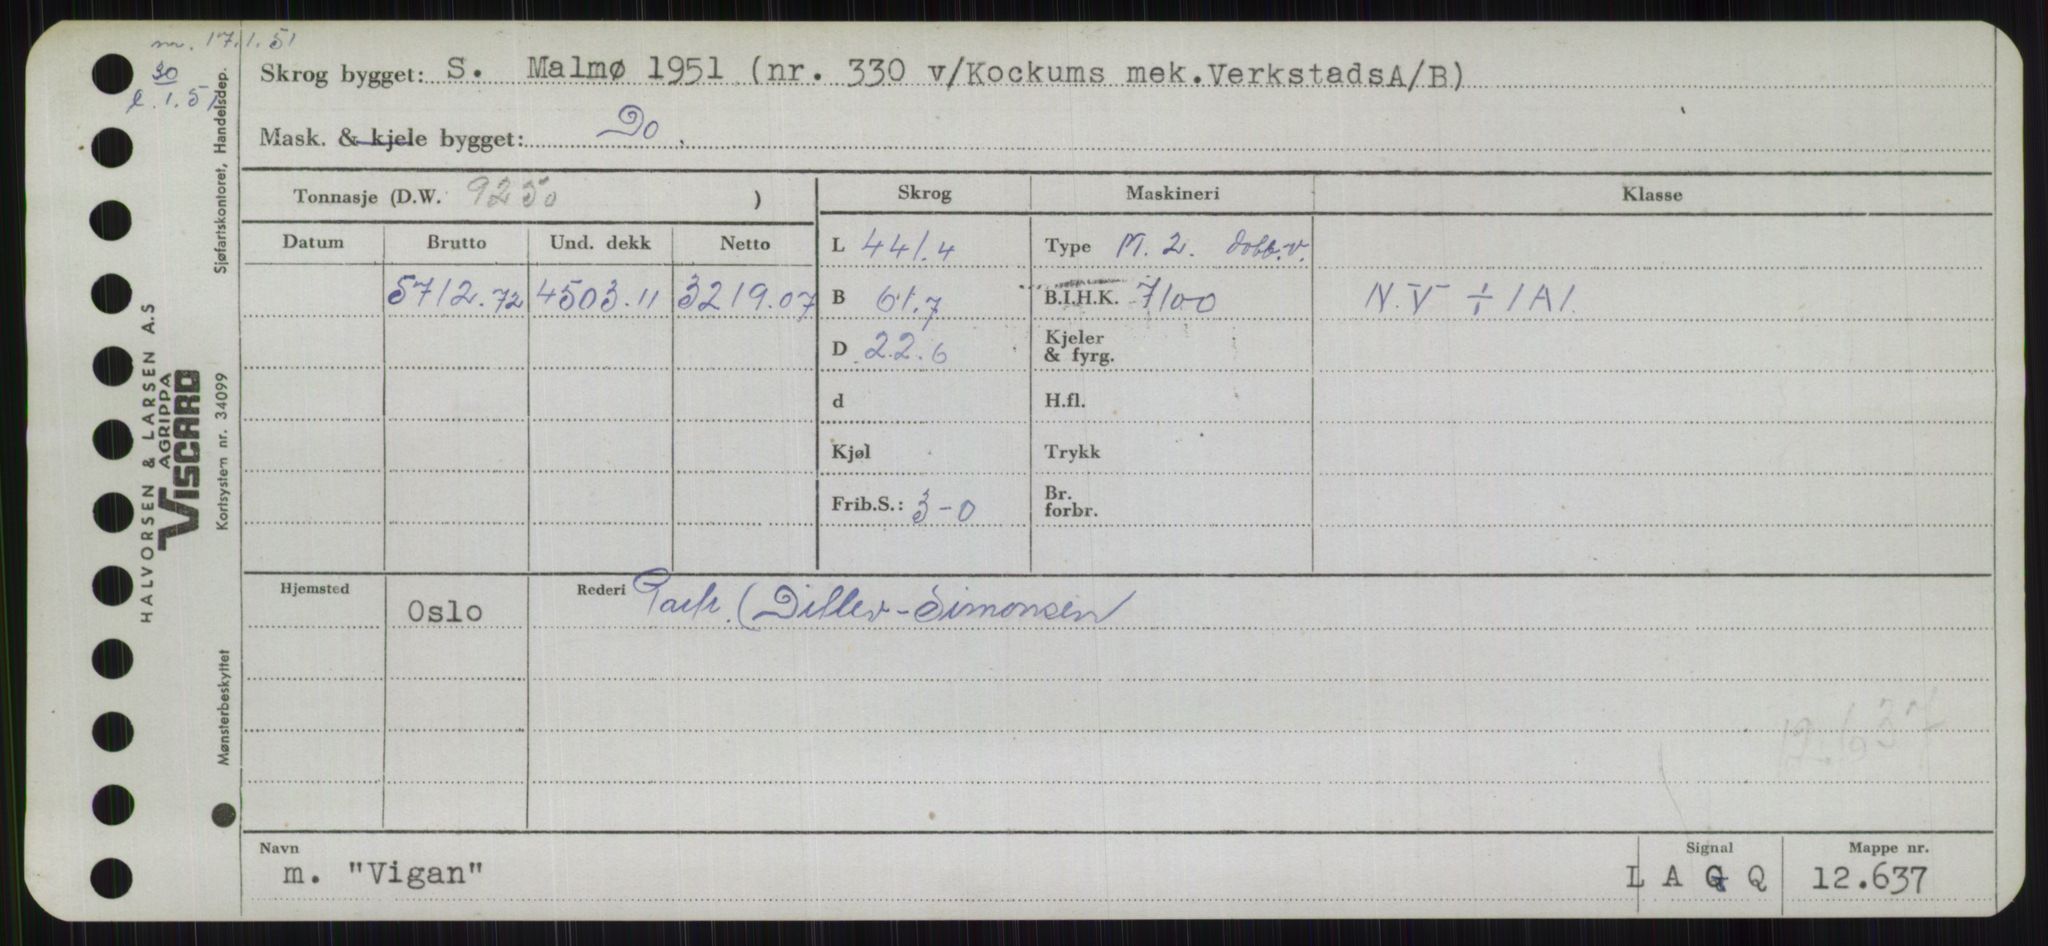 m. 17.1.51
30
l. 1. 51
Skrog bygget: S. Malmø 1951 (nr. 330 v/Kockums mek.VerkstadsA/B)
Mask. & kjele bygget: Do
Tonnasje (D.W. 9250 )
Skrog Maskineri Klasse
Datum Brutto Und. dekk Netto
L 441.4 Type M. 2. dobb.v.
5712.72 4503.11 3219.07
B 61.7 B.I.H.K. 7100 N.V ÷ 1A1.
D 22.6 Kjeler
& fyrg.
d H.fl.
Kjøl Trykk
Frib.S.: 3-0 Br.
forbr.
Hjemsted Oslo Rederi (Ditlev-Simonsen
12.637
Navn Signal Mappe nr.
m. "Vigan" L A G Q 12.637
Sjøfartskontoret, Handelsdep.
HALVORSEN & LARSEN A.S
AGRIPPA
VISCARD
Kortsystem nr. 34099
Mønsterbeskyttet